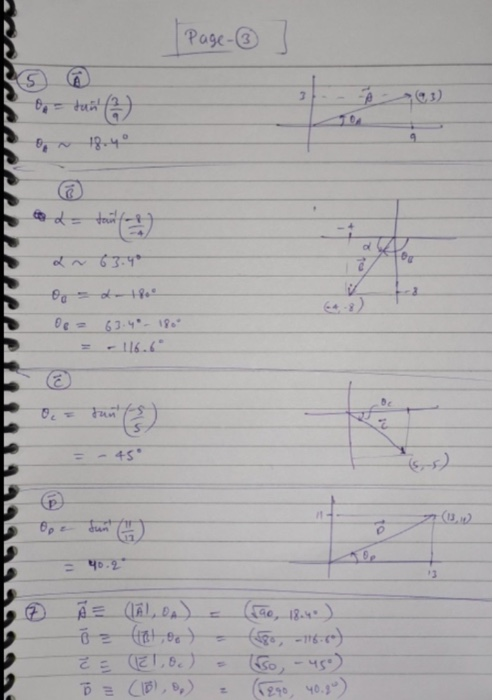 Page-③
⑤ A⃗
θ_A = tan⁻¹(3/9)
θ_A ~ 18.4°
3 A⃗ (9,3)
θ_A
9
B⃗
α = tan⁻¹(-8/-4)
α ~ 63.4°
θ_B = α - 180°
θ_B = 63.4° - 180°
= -116.6°
-4
α θ_B
B⃗
-8
(-4,-8)
C⃗
θ_C = tan⁻¹(-5/5)
= -45°
θ_C
C⃗
(5,-5)
D⃗
θ_D = tan⁻¹(11/13)
= 40.2°
11 (13,11)
D⃗
θ_D
13
⑦ A⃗ ≡ (|A⃗|, θ_A) = (√90, 18.4°)
B⃗ ≡ (|B⃗|, θ_B) = (√80, -116.6°)
C⃗ ≡ (|C⃗|, θ_C) = (√50, -45°)
D⃗ ≡ (|D⃗|, θ_D) = (√290, 40.2°)